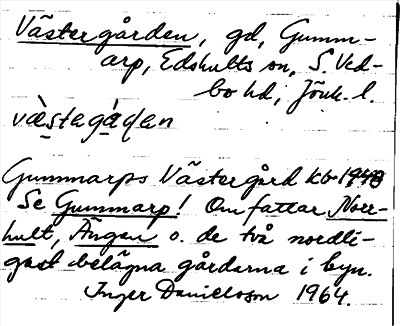 Västergården, gd, Gumm-
arp, Edshults sn, S. Ved-
bo hd, Jönk. l.
västegá̀dan
Gummarps Västergård kb 1940
Se Gummarp! Omfattar Norr-
hult, Ängen o. de två nordli-
gast belägna gårdarna i byn.
Inger Danielsson 1964.